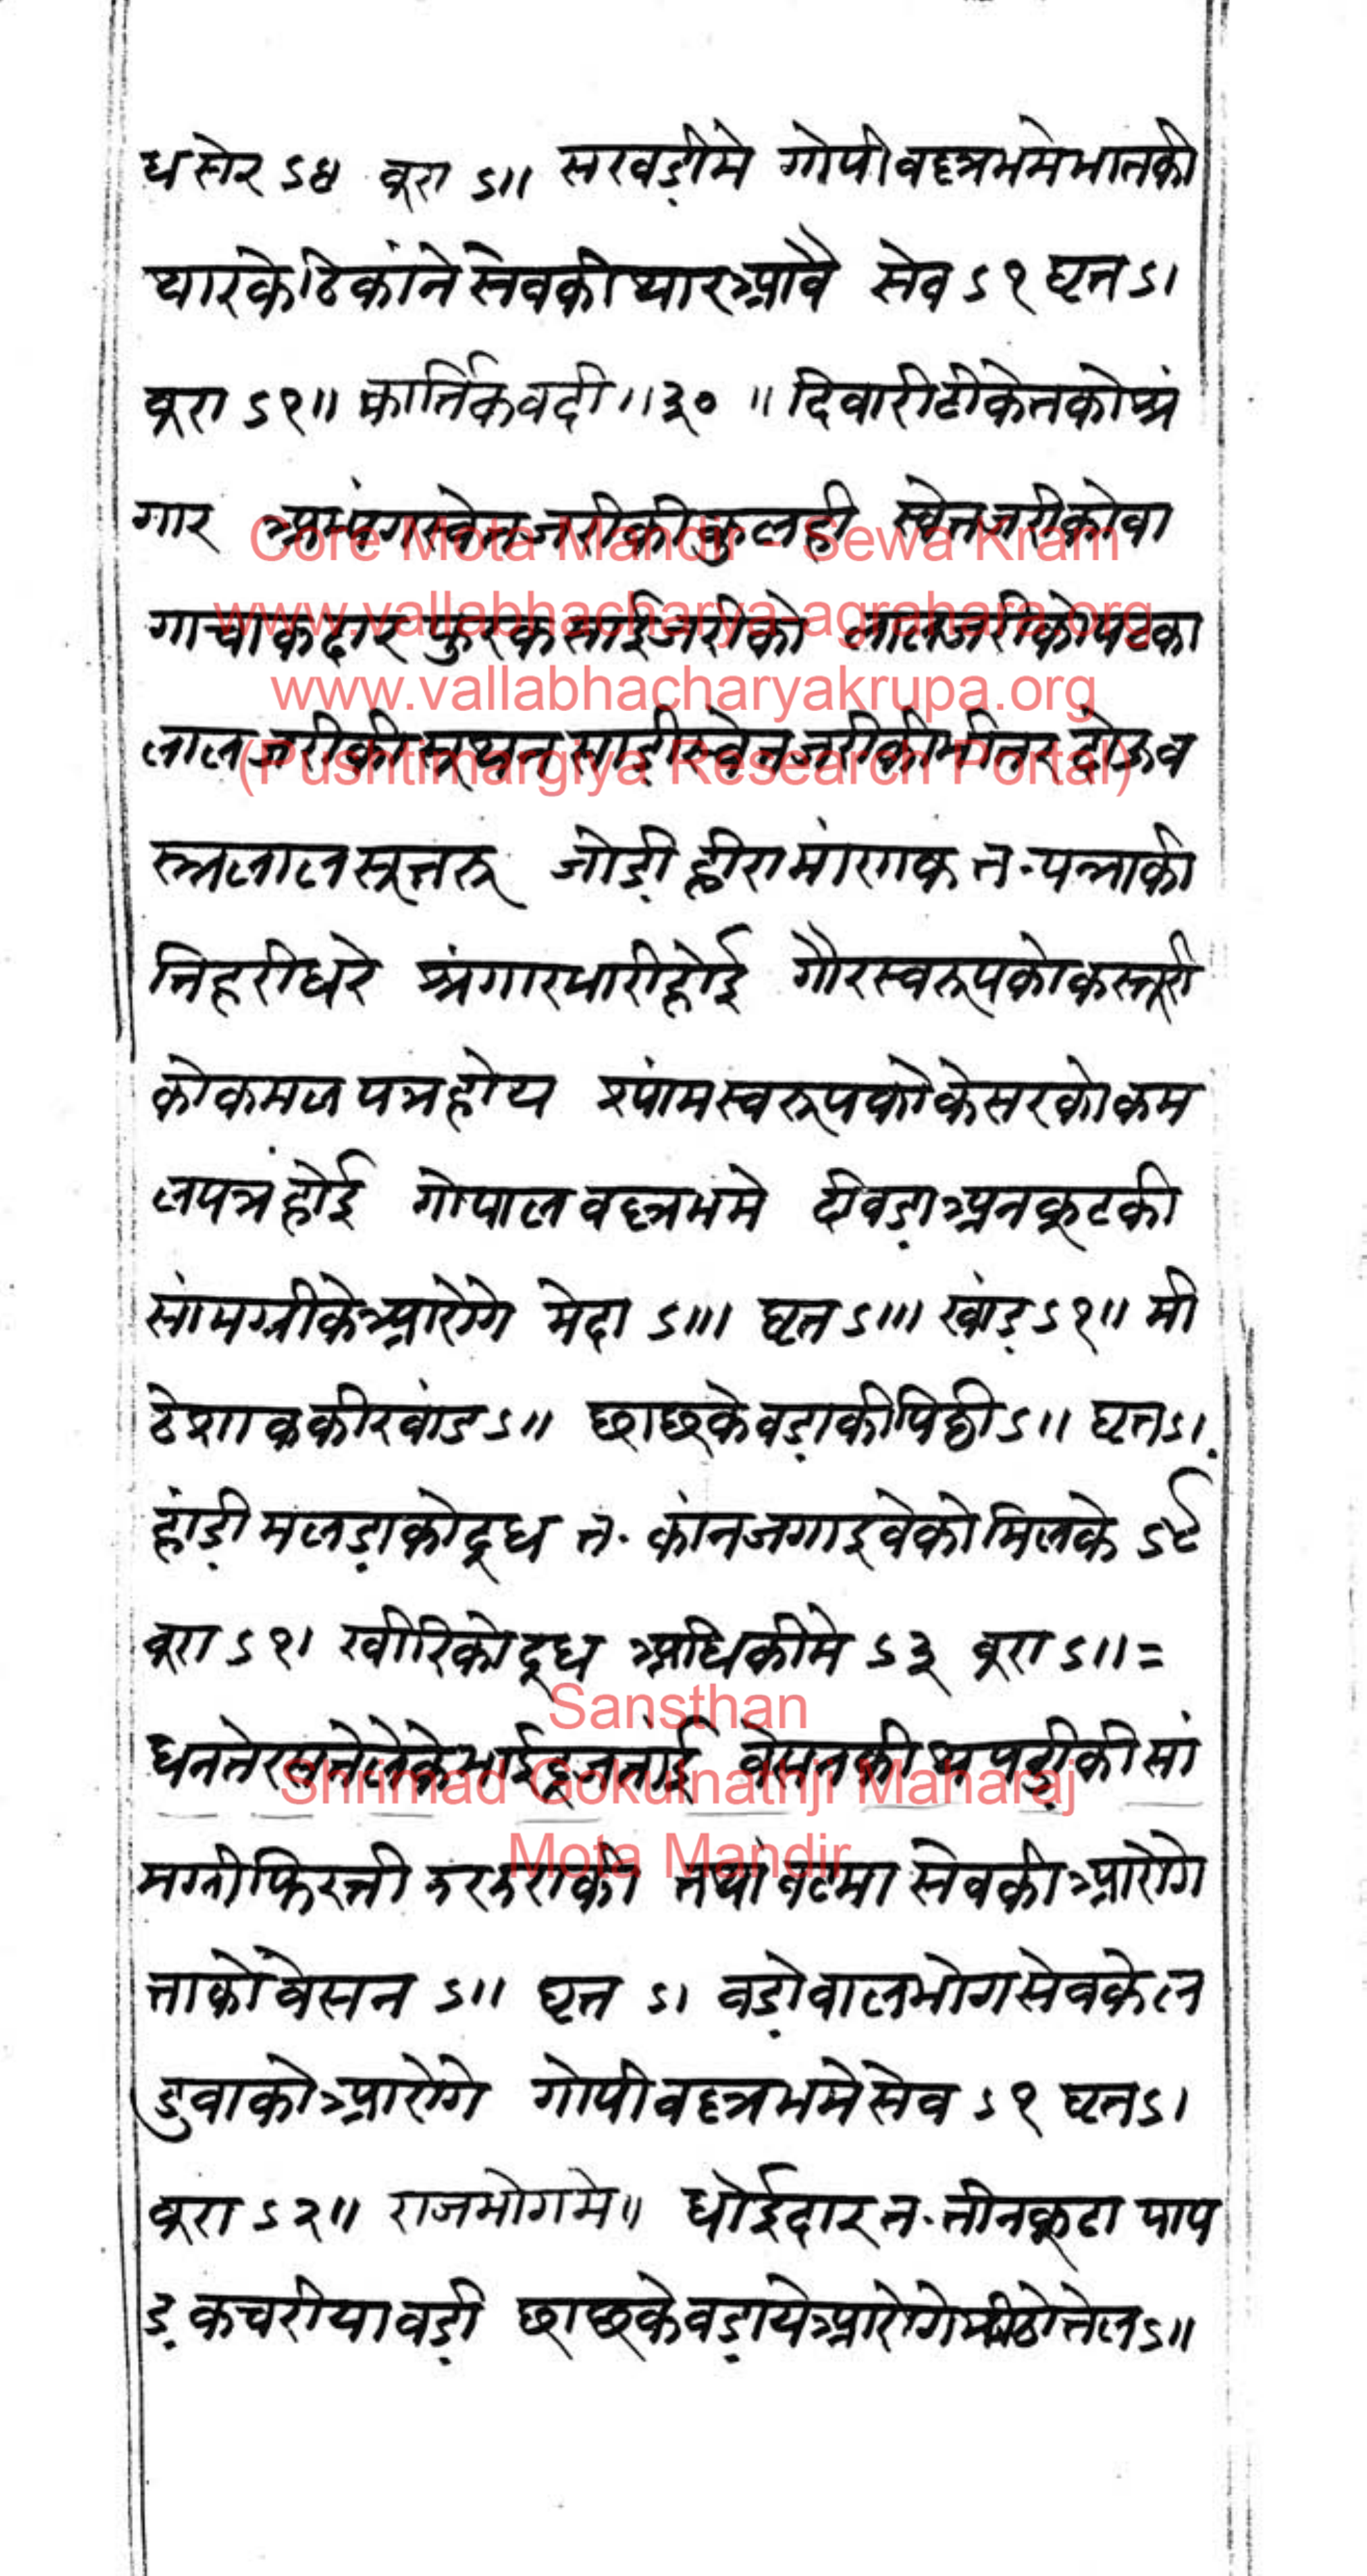 ध सेर ऽ४ बूरा ऽ॥ सखड़ीमे गोपीवल्लभमे भातकी
थारके ठिकांने सेवकी थार आवै सेव ऽ१ घृत ऽ।
बूरा ऽ१॥ कार्तिक वदी ॥३०॥ दिवारी ठीकेतको श्रृं
गार स्वेत जरीकी कुलही स्वेत जरीको वा
गा चाकदार जरीको लाल जरीको पटका
लाल जरीकी सूथन साड़ी स्वेत जरीकी भीतर दोऊ व
स्त्र लाल सूतरू जोड़ी हीरा मांणक त॰ पन्नाकी
तिहरी धरे श्रृंगार भारी होई गौर स्वरूपको कस्तूरी
को कमल पत्र होय श्यांम स्वरूपको केसरको कम
लपत्र होई गोपालवल्लभमे दीवड़ा अनकूटकी
सांमग्रीके आरोगे मेदा ऽ॥। घृत ऽ॥। खांड़ ऽ१॥ मी
ठे शाककी खांड ऽ॥ छाछके वड़ाकी पिठी ऽ॥ घृत ऽ।
हांड़ी मलड़ाको दूध त॰ कांन जगाइवेको मिलके ऽ८
बूरा ऽ१। खीरिको दूध अधिकीमे ऽ३ बूरा ऽ॥=
धनतेरसते लेके भाईदूज तांई वेसनकी थपड़ीकी सां
मग्री फिरती तथा सेवकी आरोगे
ताको वेसन ऽ॥ घृत ऽ। वड़ो बालभोग सेवके ल
डुवाको आरोगे गोपीवल्लभमे सेव ऽ१ घृत ऽ।
बूरा ऽ२॥ राजभोगमे॥ धोईदार त॰ तीनकूटा पाप
ड़ कचरीया वड़ी छाछके वड़ा ये आरोगे मीठो तेल ऽ॥
Core Mota Mandir - Sewa Kram
www.vallabhacharya-agrahara.org
www.vallabhacharyakrupa.org
(Pushtimargiya Research Portal)
Sansthan
Shrimad Gokulnathji Maharaj
Mota Mandir